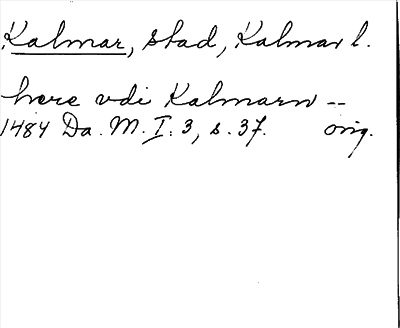 Kalmar, stad, Kalmar l.
here vdi Kalmarn --
1484 Da. M. I. 3, s. 37. orig.